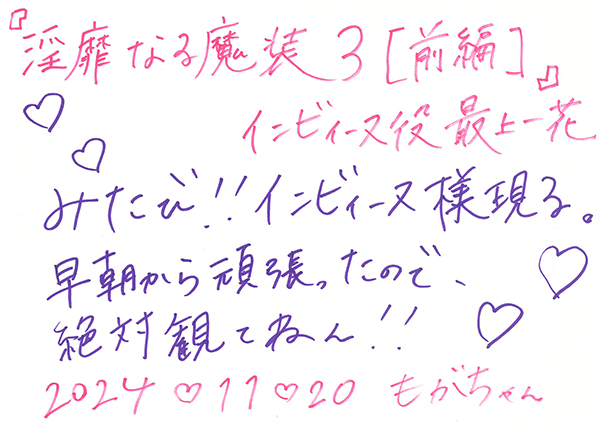 『淫靡なる魔装3[前編]』
インビィーヌ役 最上一花
みたび!!インビィーヌ様現る。
早朝から頑張ったので、
絶対観てねん!!
2024♡11♡20 もがちゃん